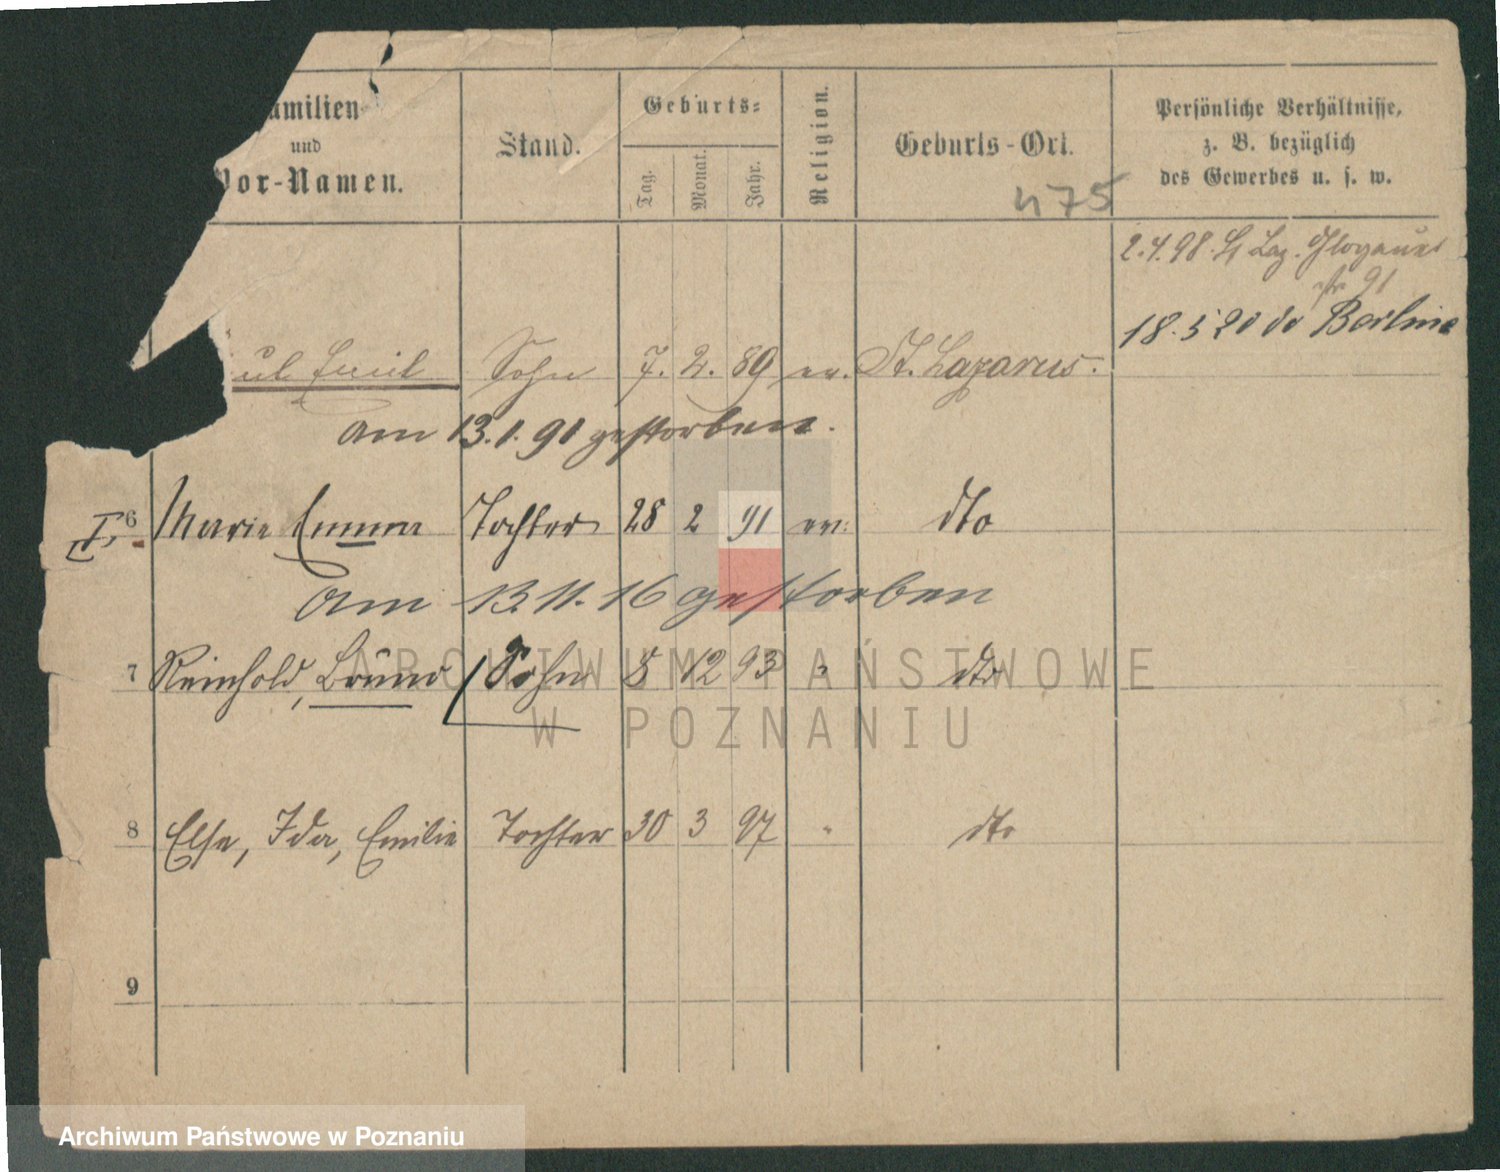 amilien
und
Vor-Namen.
Stand.
Geburts-
Tag.
Monat.
Jahr.
Religion.
Geburts-Ort.
475
Persönliche Verhältnisse,
z. B. bezüglich
des Gewerbes u. s. w.
2.4.98. St Laz. Glogauer
str 91
18.5 20 do Berlin
ul Emil Sohn 7. 2. 89 ev. St. Lazarus.
am 13.1.91 gestorben.
I. 6 Marie Emma Tochter 28 2 91 ev. dto
am 13.11.16 gestorben
7 Reinhold, Bruno Sohn 8 12 93 " dto
8 Else, Ida, Emilie Tochter 30 3 97 " dto
9
ARCHIWUM PAŃSTWOWE
W POZNANIU
Archiwum Państwowe w Poznaniu